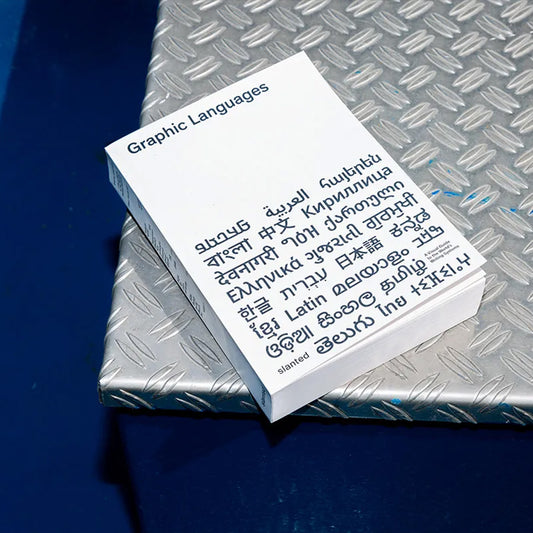 Graphic Languages
العربية հայերեն
বাংলা 中文 Кириллица
देवनागरी ግዕዝ ქართული
Ελληνικά ગુજરાતી ਗੁਰਮੁਖੀ
한글 עִבְרִית 日本語 ಕನ್ನಡ
ខ្មែរ Latin മലയാളം
ଓଡ଼ିଆ සිංහල தமிழ்
తెలుగు ไทย
A Visual Guide
to the World's
Writing Systems
slanted